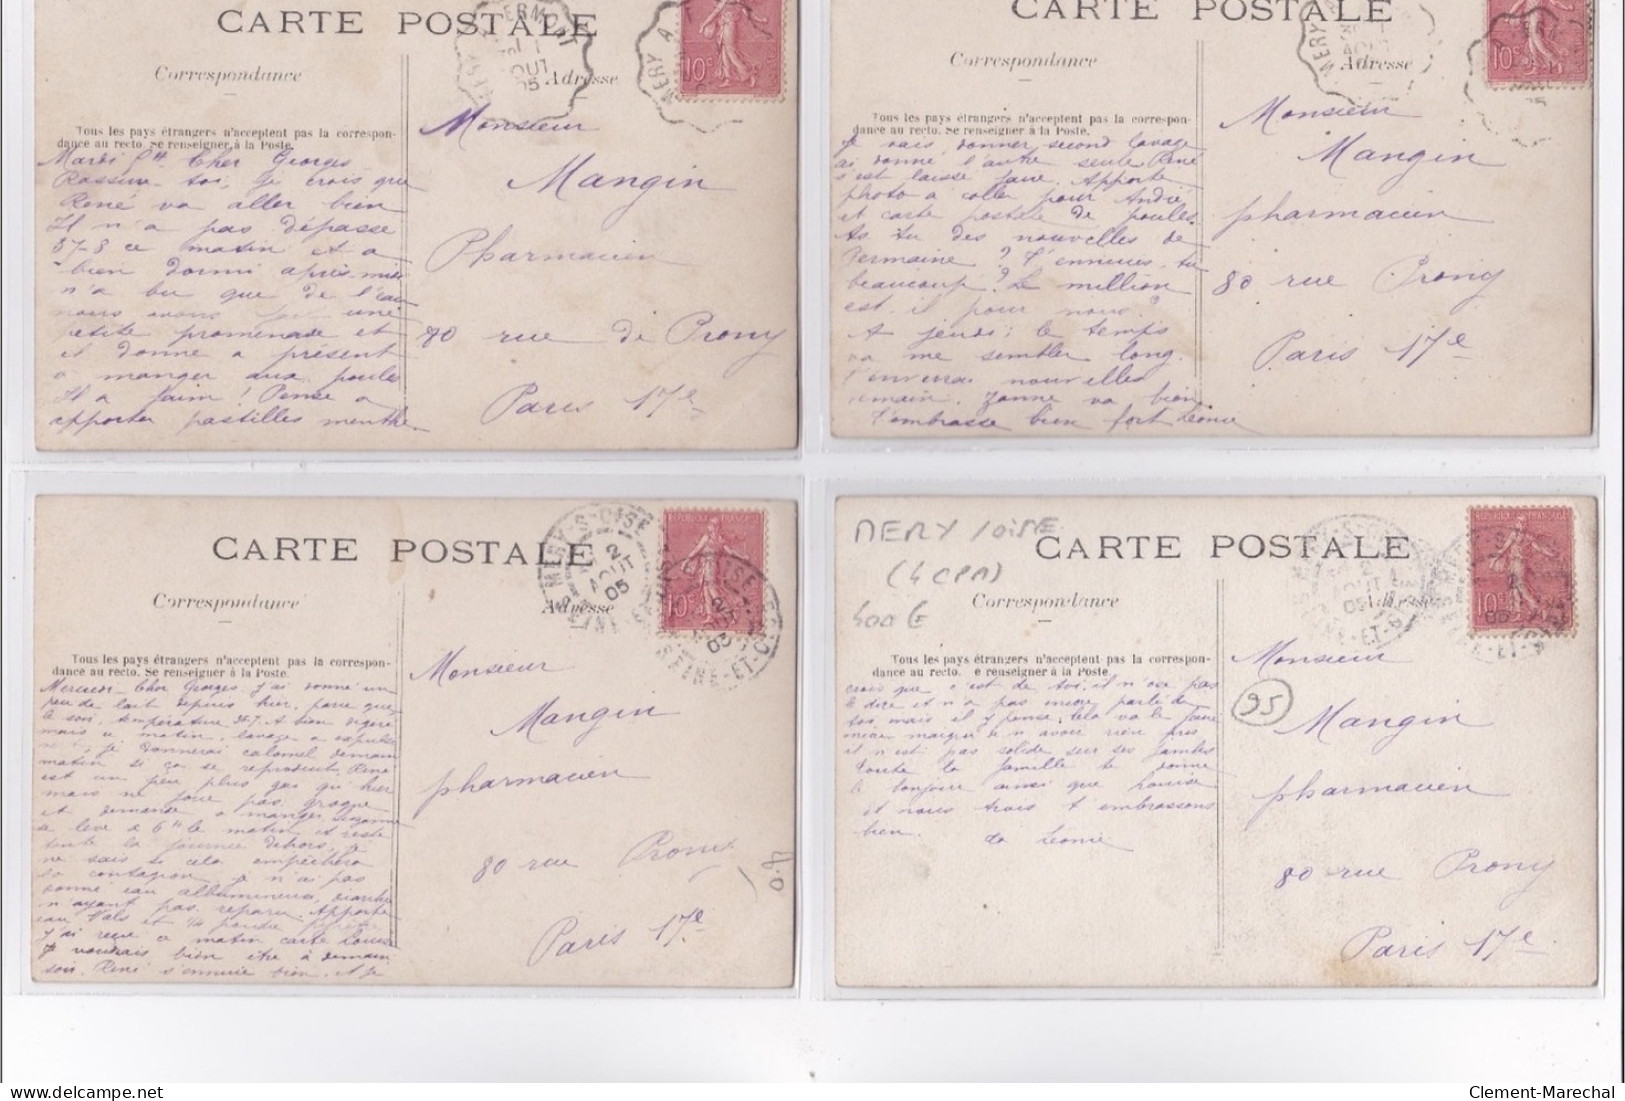 CARTE POSTALE
Correspondance
Adresse
MERY
AOUT
05
10c
Tous les pays étrangers n'acceptent pas la correspon-
dance au recto. Se renseigner à la Poste.
Mardi Cher Georges
Rassure-toi, je crois que
René va aller bien
Il n'a pas dépassé
37-8 ce matin et a
bien dormi après-midi
n'a bu que de l'eau
nous avons fait une
petite promenade et
il donne a présent
a manger aux poules
Il a faim ! Pense a
apporter pastilles menthe.
Monsieur
Mangin
Pharmacien
80 rue de Prony
Paris 17e
CARTE POSTALE
Correspondance
Adresse
MERY
10c
Tous les pays étrangers n'acceptent pas la correspon-
dance au recto. Se renseigner à la Poste.
Je vais donner second lavage
ai donné l'autre seule René
s'est laissé faire. Apporte
photo a coller pour André
et carte postale de poules.
As-tu des nouvelles de
Germaine ? T'ennuies-tu
beaucoup ? Le million
est-il pour nous ?
A jeudi ; le temps
va me sembler long.
T'enverrai nouvelles
demain. va bien
T'embrasse bien fort Léonie
Monsieur
Mangin
pharmacien
80 rue Prony
Paris 17e
CARTE POSTALE
Correspondance
Adresse
MERY-S-OISE
2
AOUT
05
SEINE-ET-OISE
10c
Tous les pays étrangers n'acceptent pas la correspon-
dance au recto. Se renseigner à la Poste.
Mercredi - Cher Georges, j'ai donné un
peu de lait depuis hier, parce que
le soir, température 36-7. A bien digéré
mais ce matin, lavage a expulsé
je donnerai calomel demain
matin si ça se reproduit. René
est un peu plus gai qu'hier
mais ne joue pas
et demande a manger. Suzanne
a levé à 6H le matin et reste
toute la journée dehors, je
ne sais si cela empêchera
la contagion, je n'ai pas
donné eau albumineuse, diarrhée
n'ayant pas reparu. Apporte
eau Vals et 1/4 poudre
J'ai reçu ce matin carte Louise
Je voudrais bien être à demain
soir. René s'ennuie bien. Et je
Monsieur
Mangin
pharmacien
80 rue Prony
Paris 17e
MERY /OISE
(4 CPA)
400 €
CARTE POSTALE
Correspondance
Adresse
10c
Tous les pays étrangers n'acceptent pas la correspon-
dance au recto. e renseigner à la Poste.
crois que c'est de toi, il n'ose pas
le dire et n'a pas encore parlé de
toi mais il y pense, cela va le faire
mieux manger n'avoir rien pris
il n'est pas solide sur ses jambes
Toute la famille te donne
le bonjour ainsi que Louise
et nous trois t'embrassons
bien.
ta Léonie
95
Monsieur
Mangin
pharmacien
80 rue Prony
Paris 17e
Clement-Marechal